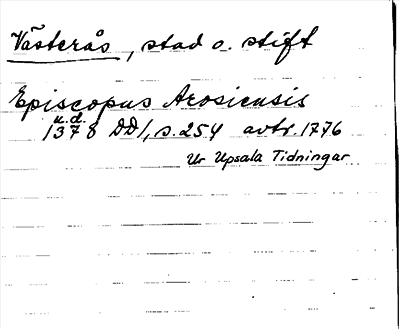 Västerås, stad o. stift
Episcopus Arosiensis
u.d.
1378 DD1, s. 254 avtr. 1776
Ur Upsala Tidningar